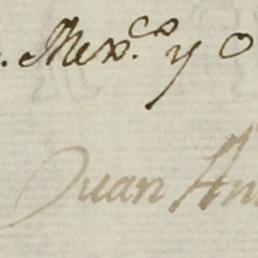 . Mex.co y O
Juan An